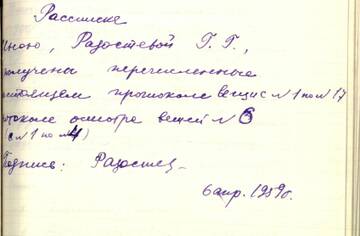 Расписка
Мною, Радостевой Г. Г.,
получены перечисленные
настоящем протоколе вещи с №1 по №17
протоколе осмотра вещей № 6
(с №1 по №4)
Подпись: Радостев
6 апр. 1959г.